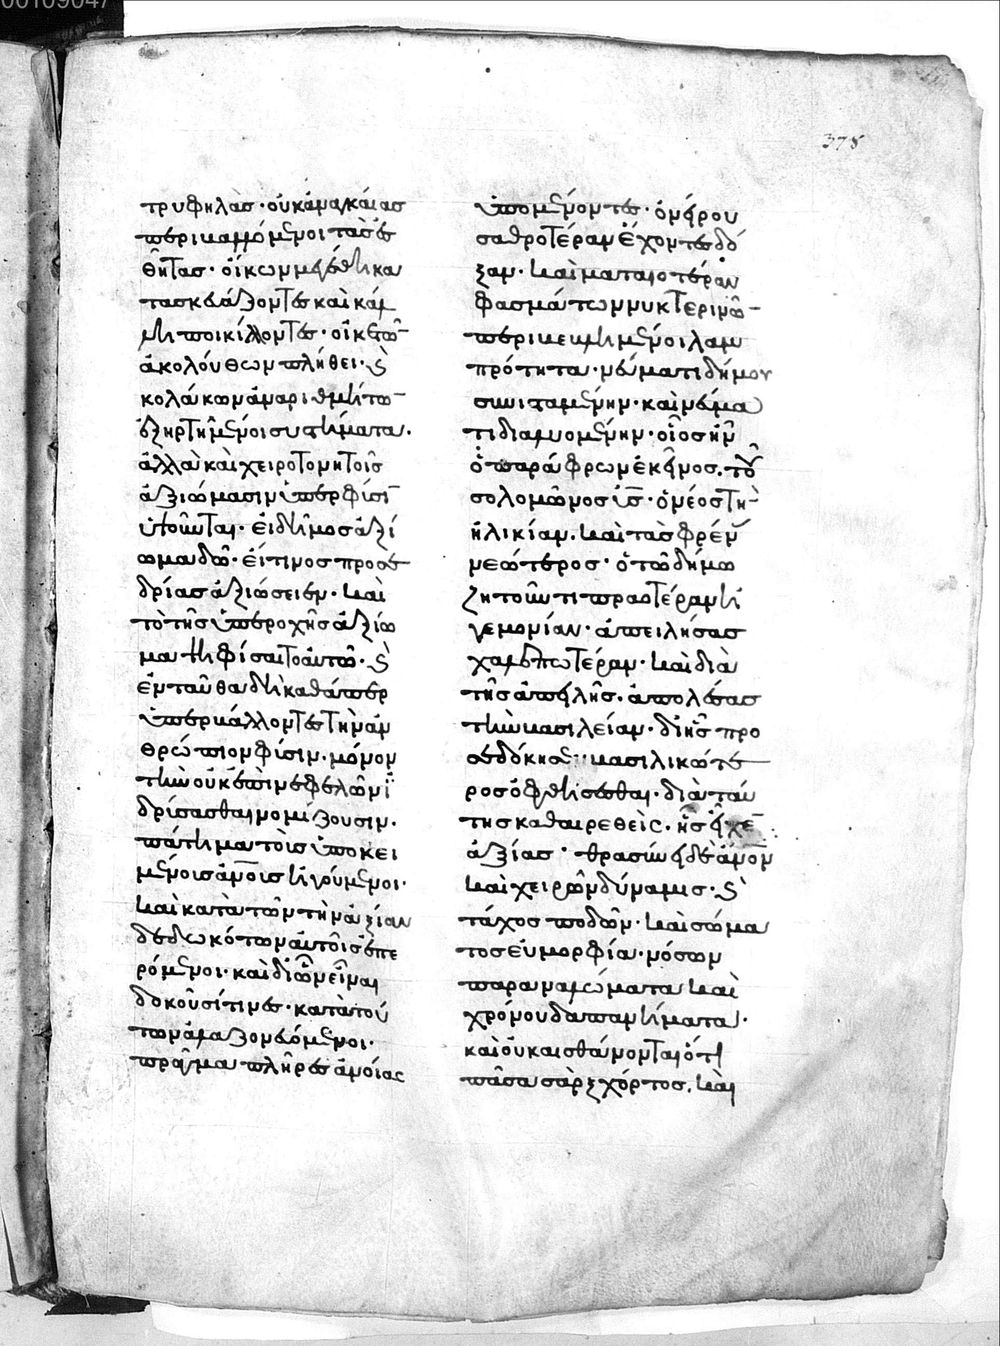 00109047
378
τρυφηλὰσ · οὐκ ἀναγκαίασ
περινωμμόμενοι τὰσ ἐσ
θῆτασ · οἴκων μεγέθη κα
τασκευάζοντες καὶ κάμ
μη ποικίλλοντες · οἰκετῶ
ἀκολούθων πλήθει · καὶ
κολάκων ἀναριθμήτω
ἐξηρτημένοι συστήματα ·
ἀλλὰ καὶ χειροτονητοῖσ
ἀξιώμασιν ὑπὲρ φύσι
ὑποῦνται · εἰ δῆμοσ ἀξί
ωμα δῶ · εἴ τινοσ προσε
δρίασ ἀξιώσειεν · καὶ
τὸ τῆσ ὑπεροχῆσ ἀξίω
μα τῇ φύσει τοαυτῶ · καὶ
ἐνταῦθα δὴ καθάπερ
ὑπερβάλλοντες τὴν ἀν
θρώπων φύσιν · μόνον
τῶν οὐκ ἐπὶ νεφελῶν ἱ
δρύσασθαι νομίζουσιν ·
πάτημα τοὺσ ὑποκει
μένουσ ἀνοῦσ ἡγούμενοι ·
καὶ κατὰ τῶν τὴν ἀξίαν
δεδωκότων αὐτοῖσ ἐπαι
ρόμενοι · καὶ δι' ὧν εἶναι
δοκοῦσί τινεσ · κατὰ τού
των ἀλαζονευόμενοι ·
πρᾶγμα πλῆρεσ ἀνοίασ
ὑπομένοντεσ · ὀνείρου
σαθροτέραν ἔχοντεσ δό
ξαν · καὶ ματαιοτέραν
φασμάτων νυκτερινῶ
περικείμενοι λαμ
πρότητα · νεύματι δήμου
συνισταμένην · καὶ νεύμα
τι διαλυομένην · οἷοσ ἦν
ὁ παράφρων ἐκεῖνοσ · τοῦ
σολομῶνοσ υἱσ · ὁ νέοσ τὴν
ἡλικίαν · καὶ τὰσ φρένασ
νεώτεροσ · ὁ τῶ δήμω
ζητοῦντι πραοτέραν ἡ
γεμονίαν · ἀπειλήσασ
χαλεπωτέραν · καὶ διὰ
τῆσ ἀπειλῆσ · ἀπολέσασ
τὴν βασιλείαν · δι' ἧσ προ
σεδόκησε βασιλικώτε
ροσ ὀφθήσεσθαι · διὰ ταύ
τησ καθαιρεθεὶσ · ἧσ εἶχε
ἀξίασ · θρασύνει δὲ ἄνον
καὶ χειρῶν δύναμισ · καὶ
τάχοσ ποδῶν · καὶ σώμα
τοσ εὐμορφία · νόσων
παραναλώματα καὶ
χρόνου δαπανήματα ·
καὶ οὐκ αἰσθάνονται ὅτι
πᾶσα σὰρξ χόρτοσ · καὶ